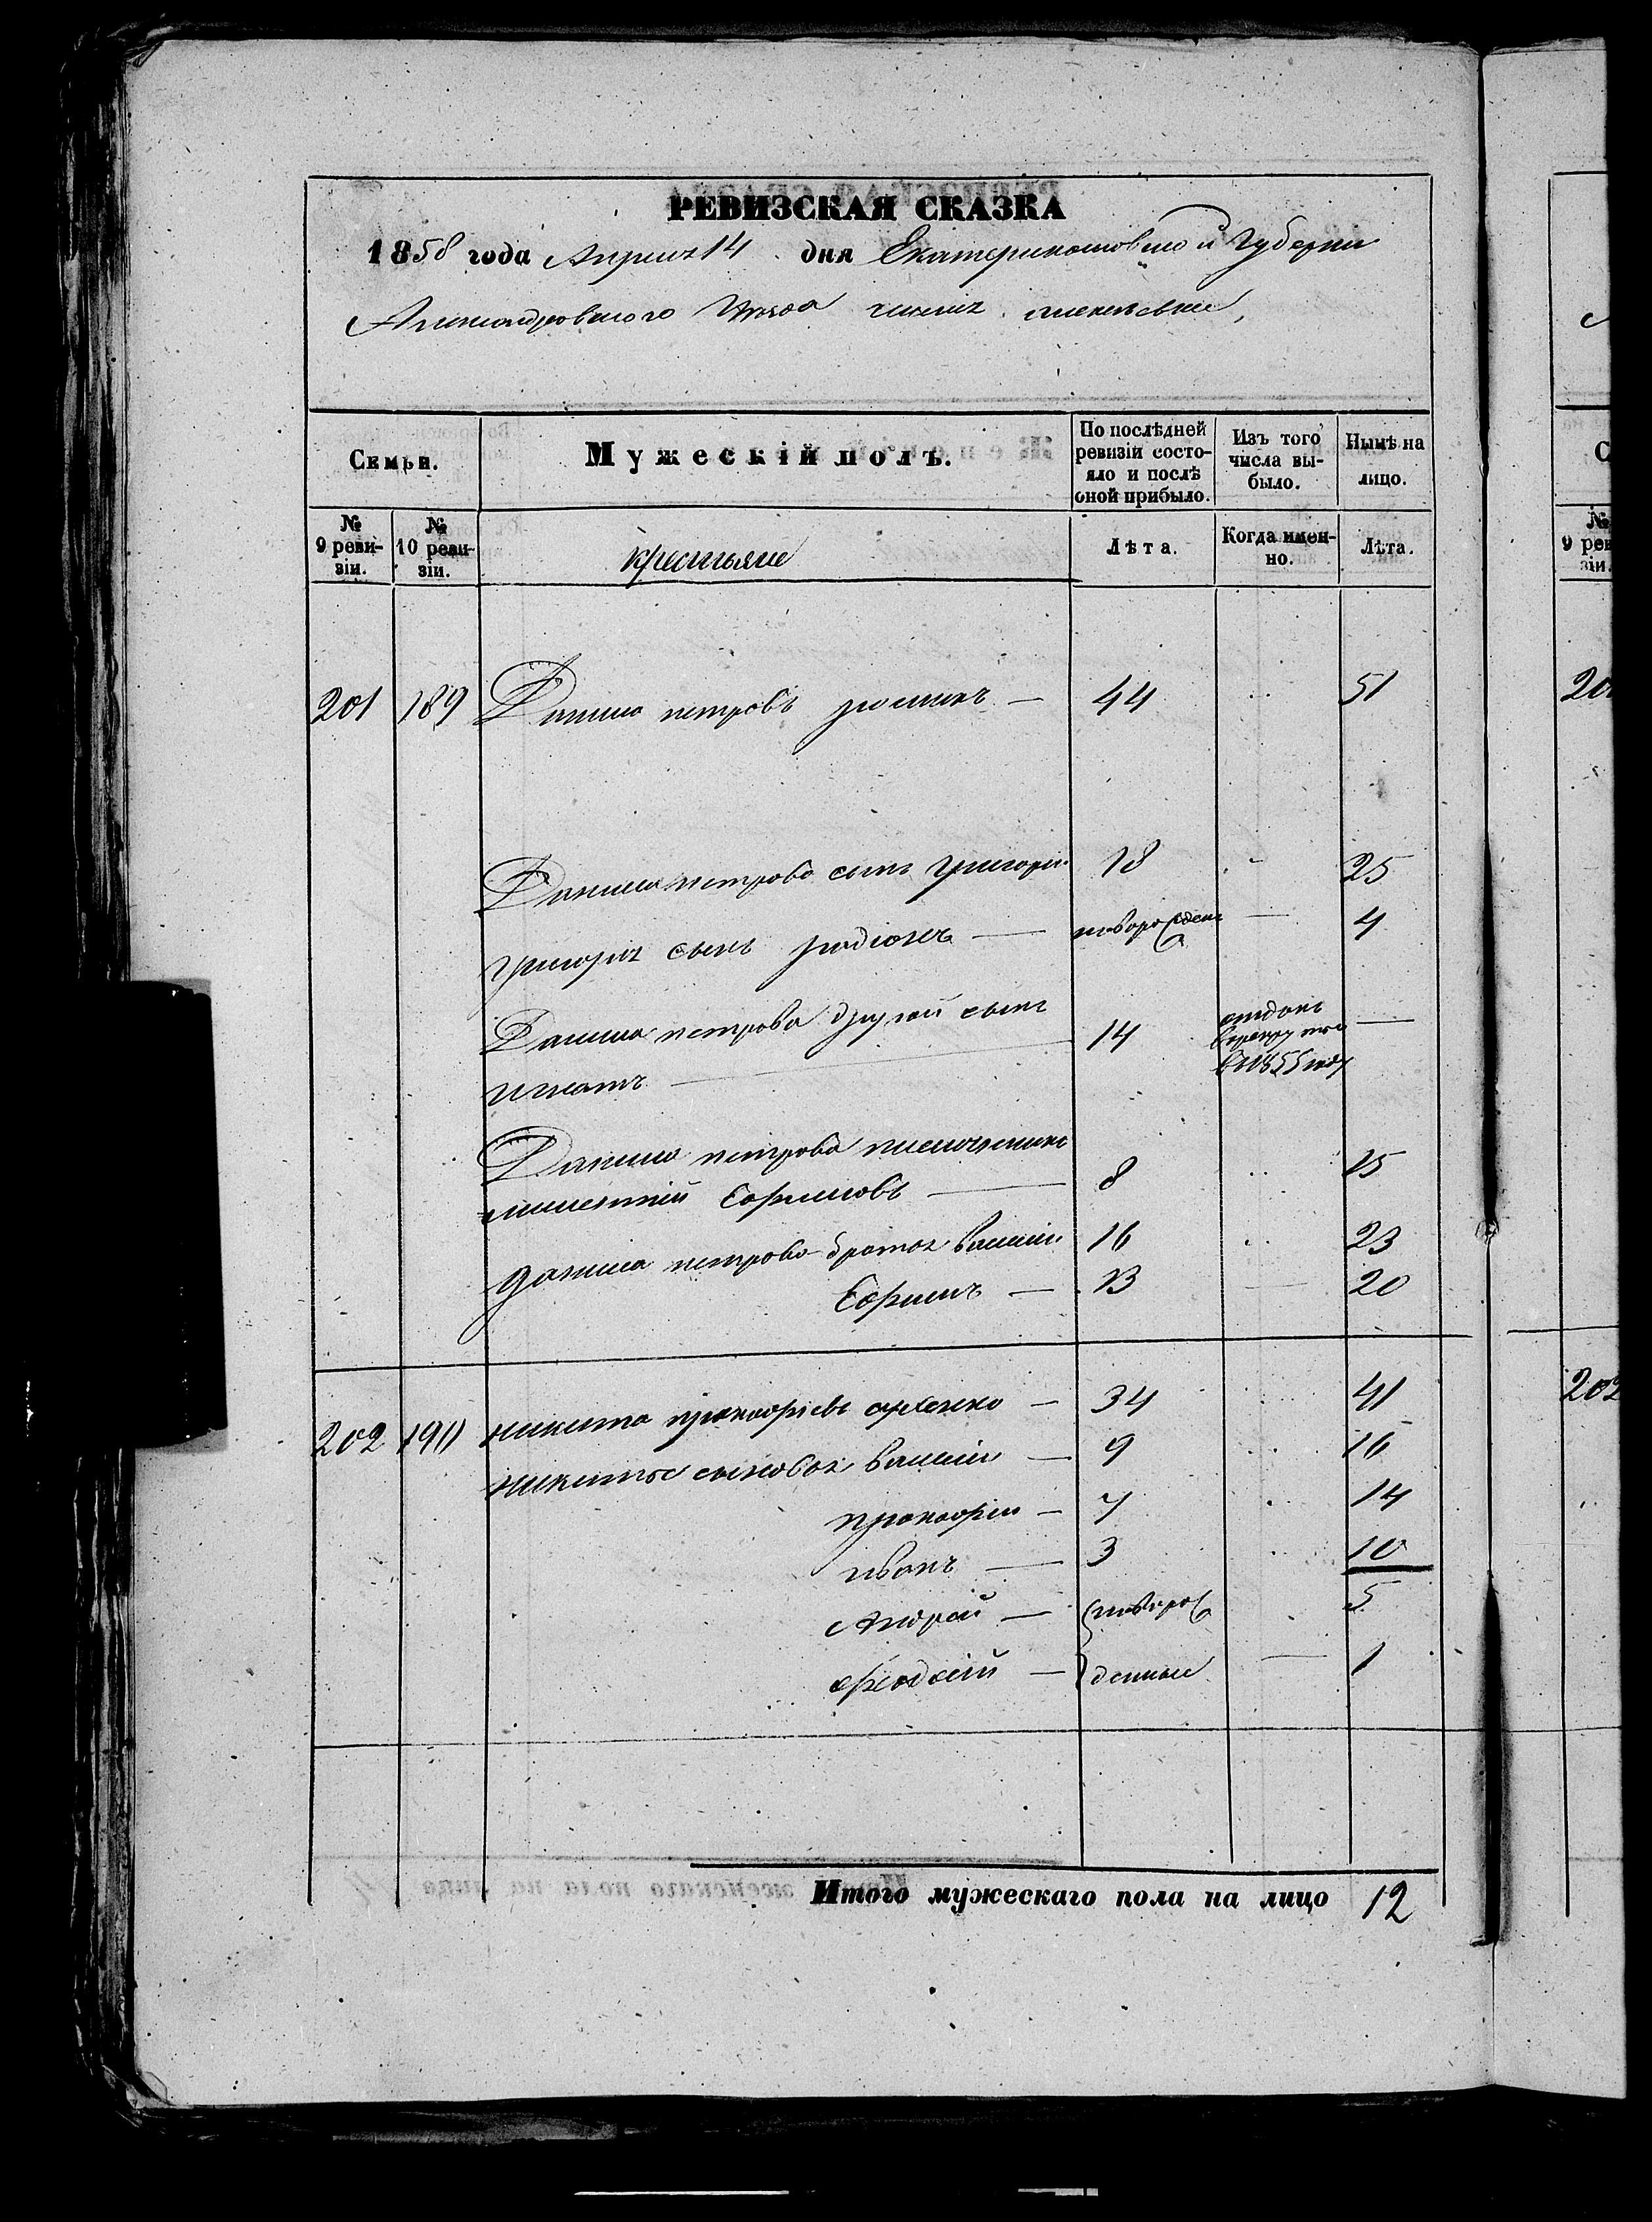 РЕВИЗСКАЯ СКАЗКА
1858 года Апреля 14 дня Екатеринославской Губернии
Александровского Уезда
Семьи.
Мужескій полъ.
По послѣдней ревизіи состо-яло и послѣ оной прибыло.
Изъ того числа вы-было.
Нынѣ на лицо.
№ 9 реви-зіи.
№ 10 реви-зіи.
крестьяне
Лѣта.
Когда имен-но.
Лѣта.
201 189 Данило петровъ — 44 51
Данила петрова сынъ григорій 18 25
григорія сынъ радіонъ — новорожден — 4
Данила петрова другой сынъ 14 отданъ —
игнатъ — в рекруты
в 1855 году
Данила петрова
Ефимовъ — 8 15
данила петрова братья василій 16 23
Ефимъ — 13 20
202 190 никита прокофіевъ — 34 41
никиты сыновья василій — 9 16
прокофій — 7 14
иванъ — 3 10
Андрей — новорож 5
феодосій — денные — 1
Итого мужескаго пола на лицо 12
9 рев
зіи.
202